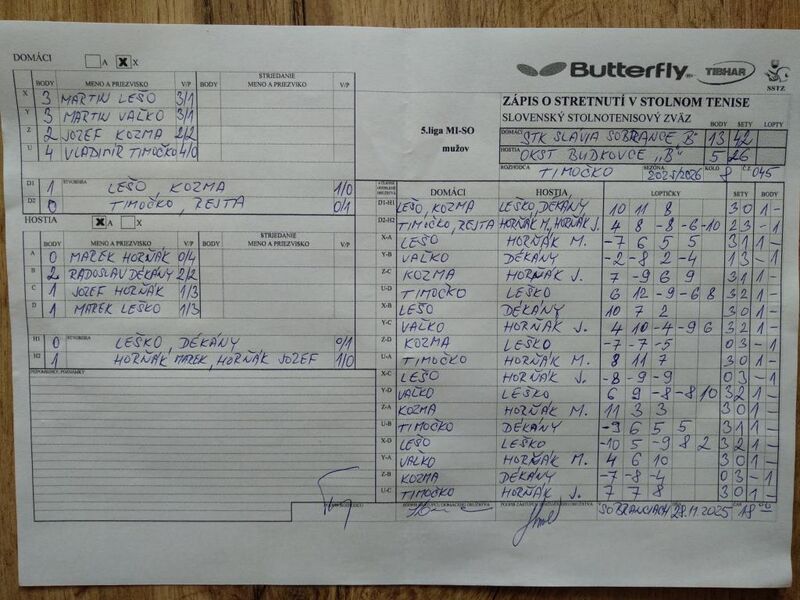 DOMÁCI A X X
BODY MENO A PRIEZVISKO V/P BODY STRIEDANIE MENO A PRIEZVIKO V/P
X 3 MARTIN LEŠO 3/1
Y 3 MARTIN VALKO 3/1
Z 2 JOZEF KOZMA 2/2
U 4 VLADIMÍR TIMOČKO 4/0
D1 1 ŠTVORHRA LEŠO, KOZMA 1/0
D2 0 TIMOČKO, REJTA 0/1
HOSTIA X A X
BODY MENO A PRIEZVISKO V/P BODY STRIEDANIE MENO A PRIEZVISKO V/P
A 0 MAREK HORŇÁK 0/4
B 2 RADOSLAV DÉKÁNY 2/2
C 1 JOZEF HORŇÁK 1/3
D 1 MAREK LEŠKO 1/3
H1 0 ŠTVORHRA LEŠKO, DÉKÁNY 0/1
H2 1 HORŇÁK MAREK, HORŇÁK JOZEF 1/0
PRIPOMIENKY, POZNÁMKY
Butterfly TIBHAR SSTZ
5.liga MI-SO
mužov
ZÁPIS O STRETNUTÍ V STOLNOM TENISE
SLOVENSKÝ STOLNOTENISOVÝ ZVÄZ BODY SETY LOPTY
DOMÁCI STK SLAVIA SOBRANCE "B" 13 42
HOSTIA OKST BUDKOVCE "B" 5 26
ROZHODCA TIMOČKO SEZÓNA 2025/2026 KOLO 8 Č.Z. 045
DOMÁCI HOSTIA LOPTIČKY SETY BODY
D1-H1 LEŠO, KOZMA LEŠKO, DÉKÁNY 10 11 8 3 0 1 -
D2-H2 TIMOČKO, REJTA HORŇÁK M., HORŇÁK J. 4 8 -8 -6 -10 2 3 - 1
X-A LEŠO HORŇÁK M. -7 6 5 5 3 1 1 -
Y-B VALKO DÉKÁNY -2 -8 2 -4 1 3 - 1
Z-C KOZMA HORŇÁK J. 7 -9 6 9 3 1 1 -
U-D TIMOČKO LEŠKO 6 12 -9 -6 8 3 2 1 -
X-B LEŠO DÉKÁNY 10 7 2 3 0 1 -
Y-C VALKO HORŇÁK J. 4 10 -4 -9 6 3 2 1 -
Z-D KOZMA LEŠKO -7 -7 -5 0 3 - 1
U-A TIMOČKO HORŇÁK M. 8 11 7 3 0 1 -
X-C LEŠO HORŇÁK J. -8 -9 -9 0 3 - 1
Y-D VALKO LEŠKO 6 9 -8 -8 10 3 2 1 -
Z-A KOZMA HORŇÁK M. 11 3 3 3 0 1 -
U-B TIMOČKO DÉKÁNY -9 6 5 5 3 1 1 -
X-D LEŠO LEŠKO -10 5 -9 8 2 3 2 1 -
Y-A VALKO HORŇÁK M. 4 6 10 3 0 1 -
Z-B KOZMA DÉKÁNY -7 -8 -4 0 3 - 1
U-C TIMOČKO HORŇÁK J. 7 7 8 3 0 1 -
V SOBRANCIACH 28.11.2025 18 00